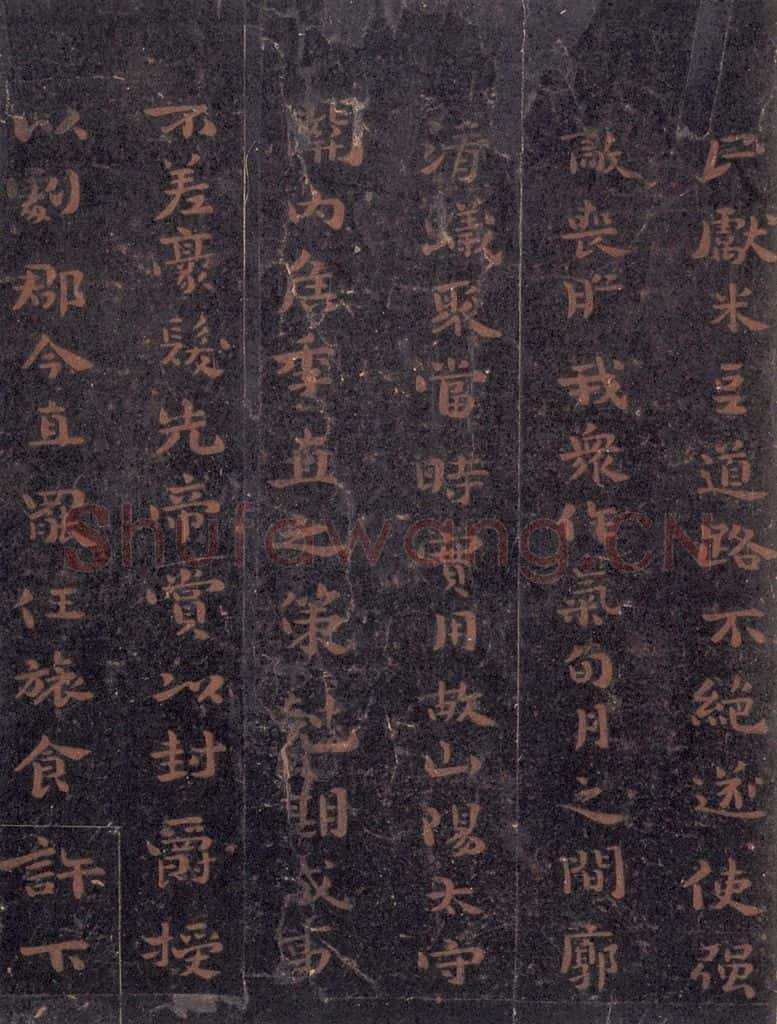 民獻米豆道路不絕遂使强
敵喪膽我衆作氣旬月之間廓
清蟻聚當時實用故山陽太守
關內侯季直之策剋期成事
不差豪髮先帝賞以封爵授
以劇郡今直罷任旅食許下
Shufawang.CN